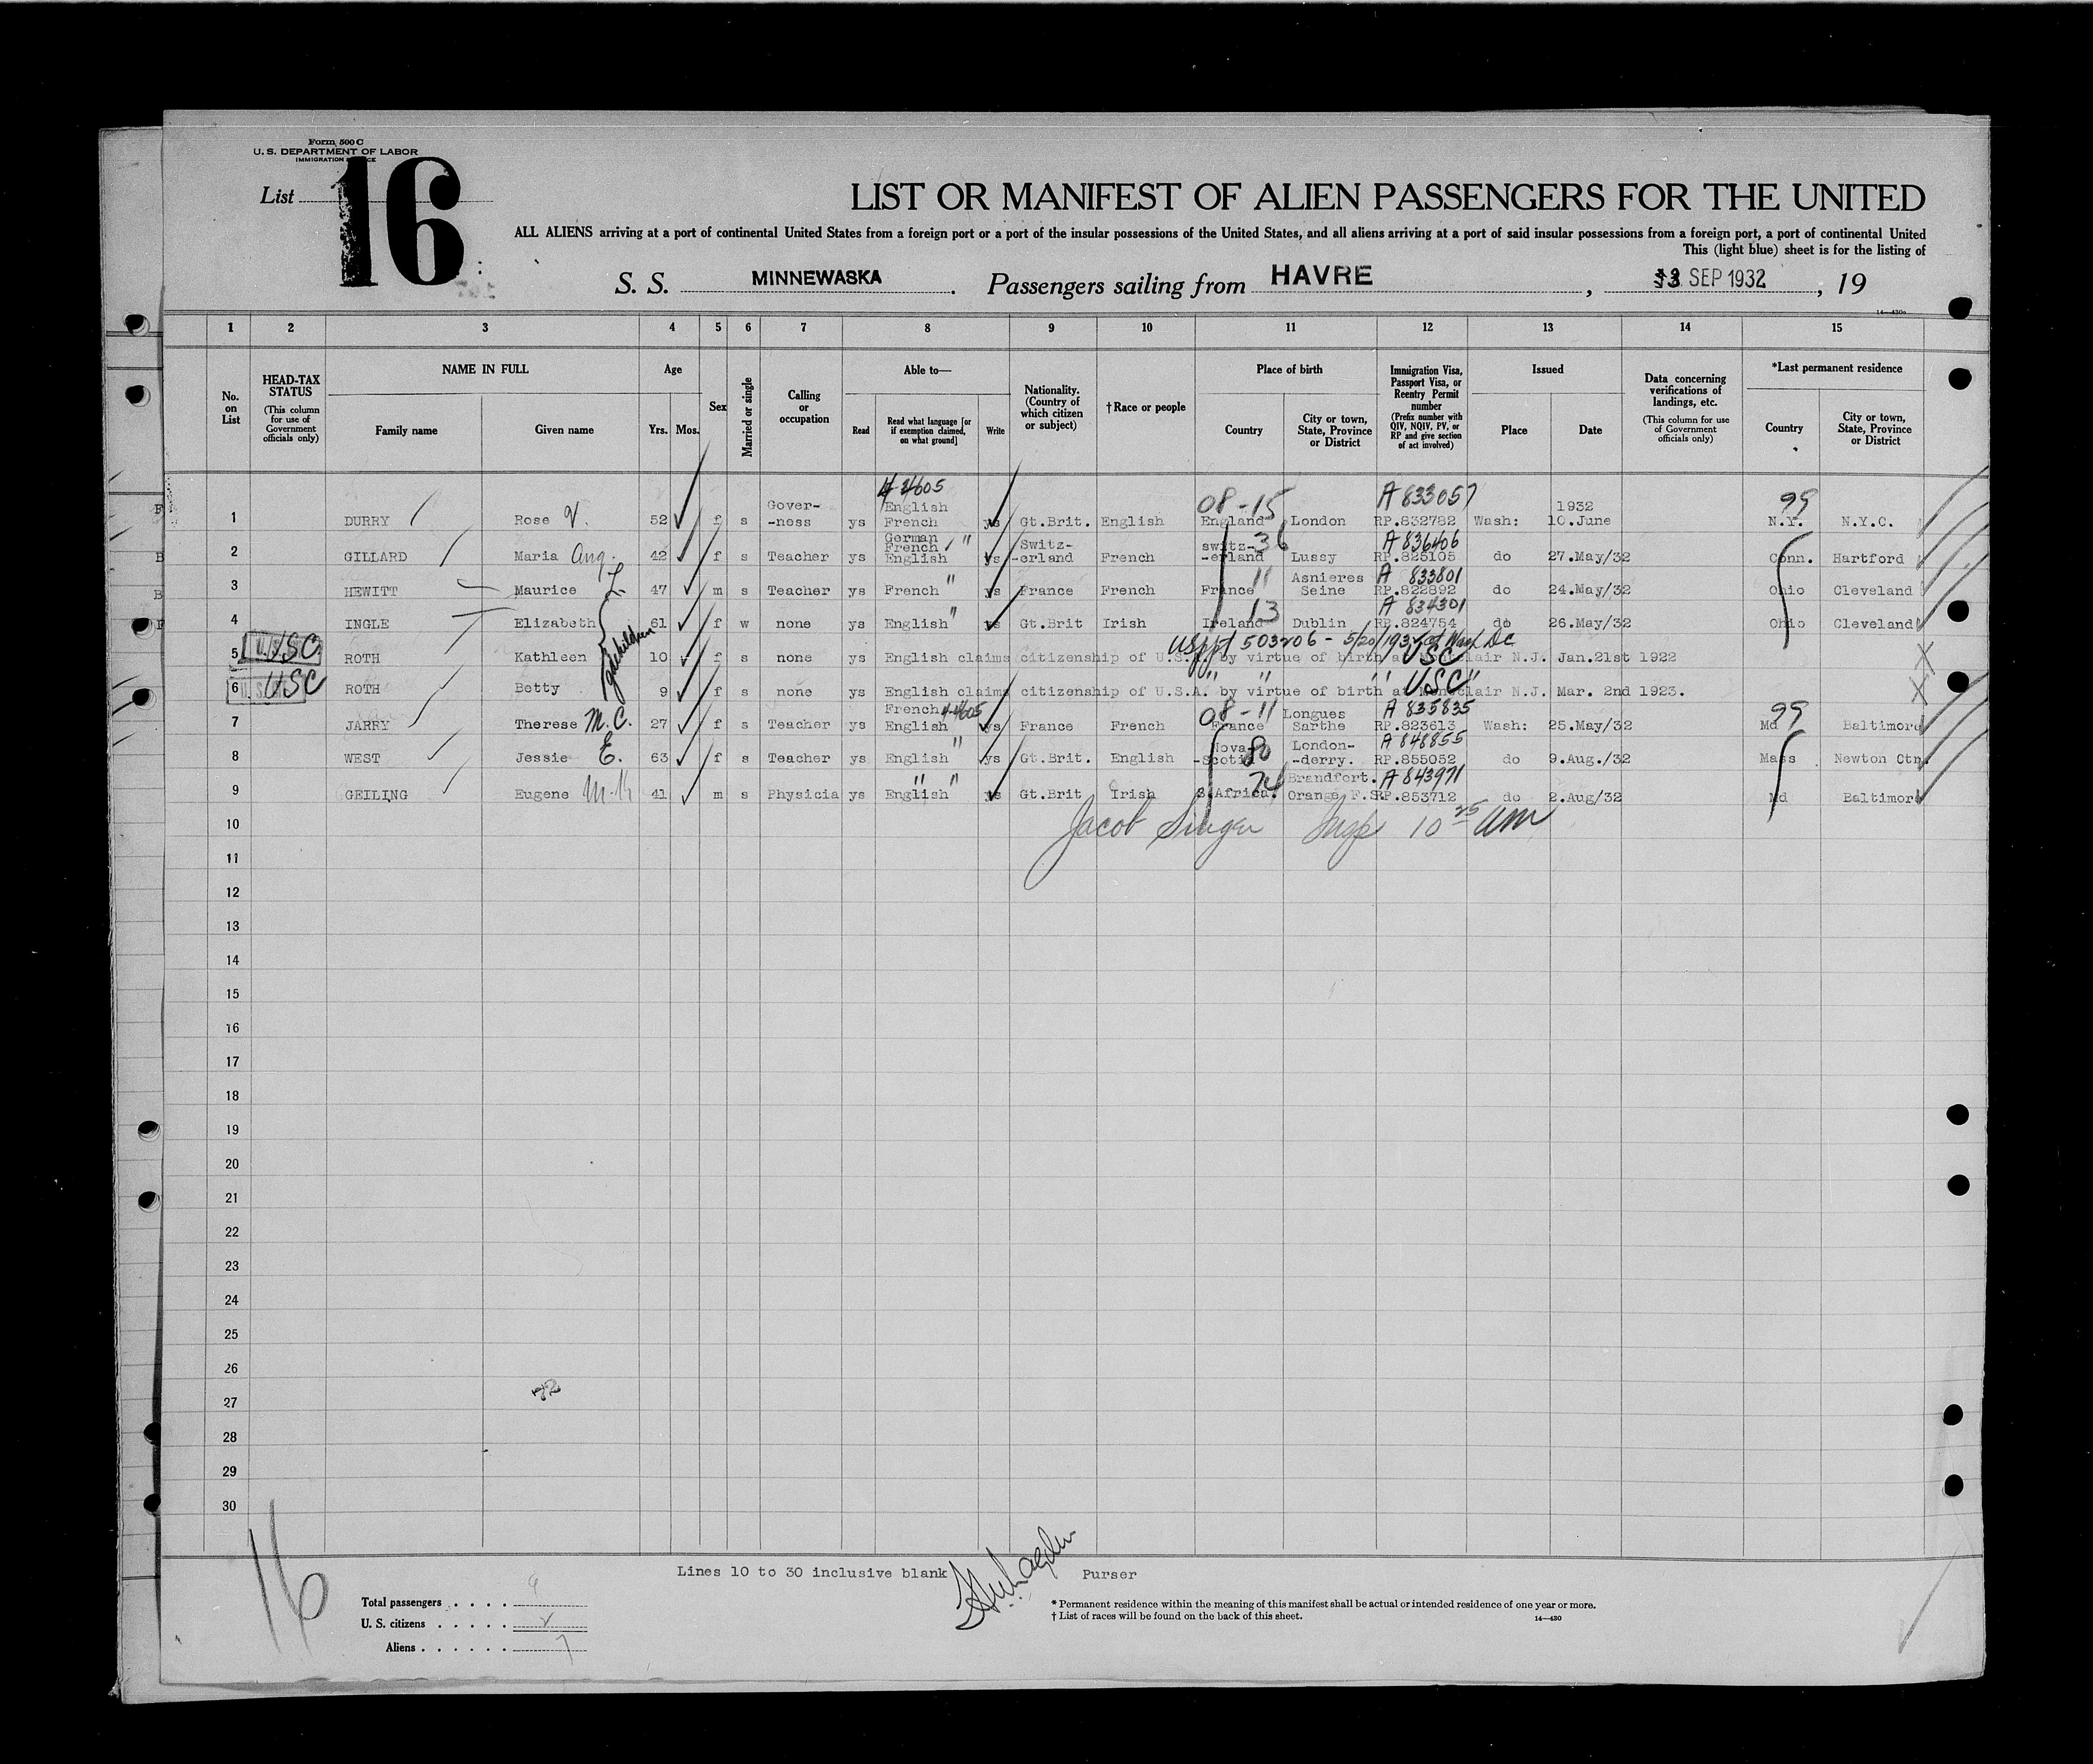 Form 500 C
U. S. DEPARTMENT OF LABOR
IMMIGRATION
List 16
LIST OR MANIFEST OF ALIEN PASSENGERS FOR THE UNITED
ALL ALIENS arriving at a port of continental United States from a foreign port or a port of the insular possessions of the United States, and all aliens arriving at a port of said insular possessions from a foreign port, a port of continental United
This (light blue) sheet is for the listing of
S. S. MINNEWASKA. Passengers sailing from HAVRE, SEP 1932, 19
14—430a
1 2 3 4 5 6 7 8 9 10 11 12 13 14 15
No. on List
HEAD-TAX STATUS (This column for use of Government officials only)
NAME IN FULL
Family name Given name
Age
Yrs. Mos.
Sex
Married or single
Calling or occupation
Able to—
Read Read what language [or if exemption claimed, on what ground] Write
Nationality. (Country of which citizen or subject)
†Race or people
Place of birth
Country City or town, State, Province or District
Immigration Visa, Passport Visa, or Reentry Permit number (Prefix number with QIV, NQIV, PV, or RP and give section of act involved)
Issued
Place Date
Data concerning verifications of landings, etc. (This column for use of Government officials only)
*Last permanent residence
Country City or town, State, Province or District
4-4605 08-15 A 833057 1932 99
1 DURRY Rose V. 52 f s Gover- -ness ys English French ys Gt.Brit. English England London RP.832782 Wash: 10.June N.Y. N.Y.C.
36 A 836406
2 GILLARD Maria Aug. 42 f s Teacher ys German French English ys Switz- -erland French switz- -erland Lussy RP.825105 do 27.May/32 Conn. Hartford
11 A 833801
3 HEWITT Maurice L. 47 m s Teacher ys French " ys France French France Asnieres Seine RP.822892 do 24.May/32 Ohio Cleveland
13 A 834301
4 INGLE Elizabeth 61 f w none ys English " ys Gt.Brit Irish Ireland Dublin RP.824754 do 26.May/32 Ohio Cleveland
USppt 503206 - 5/20/1932 at Wash DC
5 USC ROTH Kathleen 10 f s none ys English claims citizenship of U.S.A. by virtue of birth at Montclair N.J. Jan.21st 1922
USC
gdchildren
6 USC ROTH Betty 9 f s none ys English claims citizenship of U.S.A. by virtue of birth at Montclair N.J. Mar. 2nd 1923.
" " " USC "
4-4605 08-11 A 835835 99
7 JARRY Therese M.C. 27 f s Teacher ys French English ys France French France Longues Sarthe RP.823613 Wash: 25.May/32 Md Baltimore
80 A 848855
8 WEST Jessie E. 63 f s Teacher ys English " ys Gt.Brit. English Nova- -Scotia London- -derry. RP.855052 do 9.Aug./32 Mass Newton Ctr.
74 A 843971
9 GEILING Eugene M.K 41 m s Physicia ys English " " ys Gt.Brit Irish S.Africa. Brandfort. Orange F.S. RP.853712 do 2.Aug/32 Md Baltimore
10 Jacob Singer Insp 10 25 am
11
12
13
14
15
16
17
18
19
20
21
22
23
24
25
26
27
28
29
30
16
Lines 10 to 30 inclusive blank
Purser
Total passengers 9
U. S. citizens 2
Aliens 7
* Permanent residence within the meaning of this manifest shall be actual or intended residence of one year or more.
† List of races will be found on the back of this sheet.
14—430